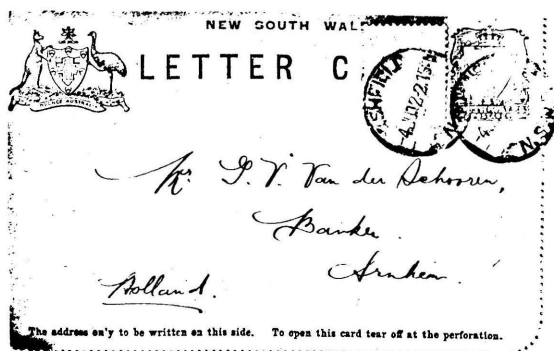 NEW SOUTH WAL
LETTER C
ADVANCE AUSTRALIA
ASHFIELD
4 JU 02 2.15
N.S.W
Mr. P. V. Van der Schooren,
Banker.
Arnhem.
Holland.
The address on'y to be written on this side. To open this card tear off at the perforation.